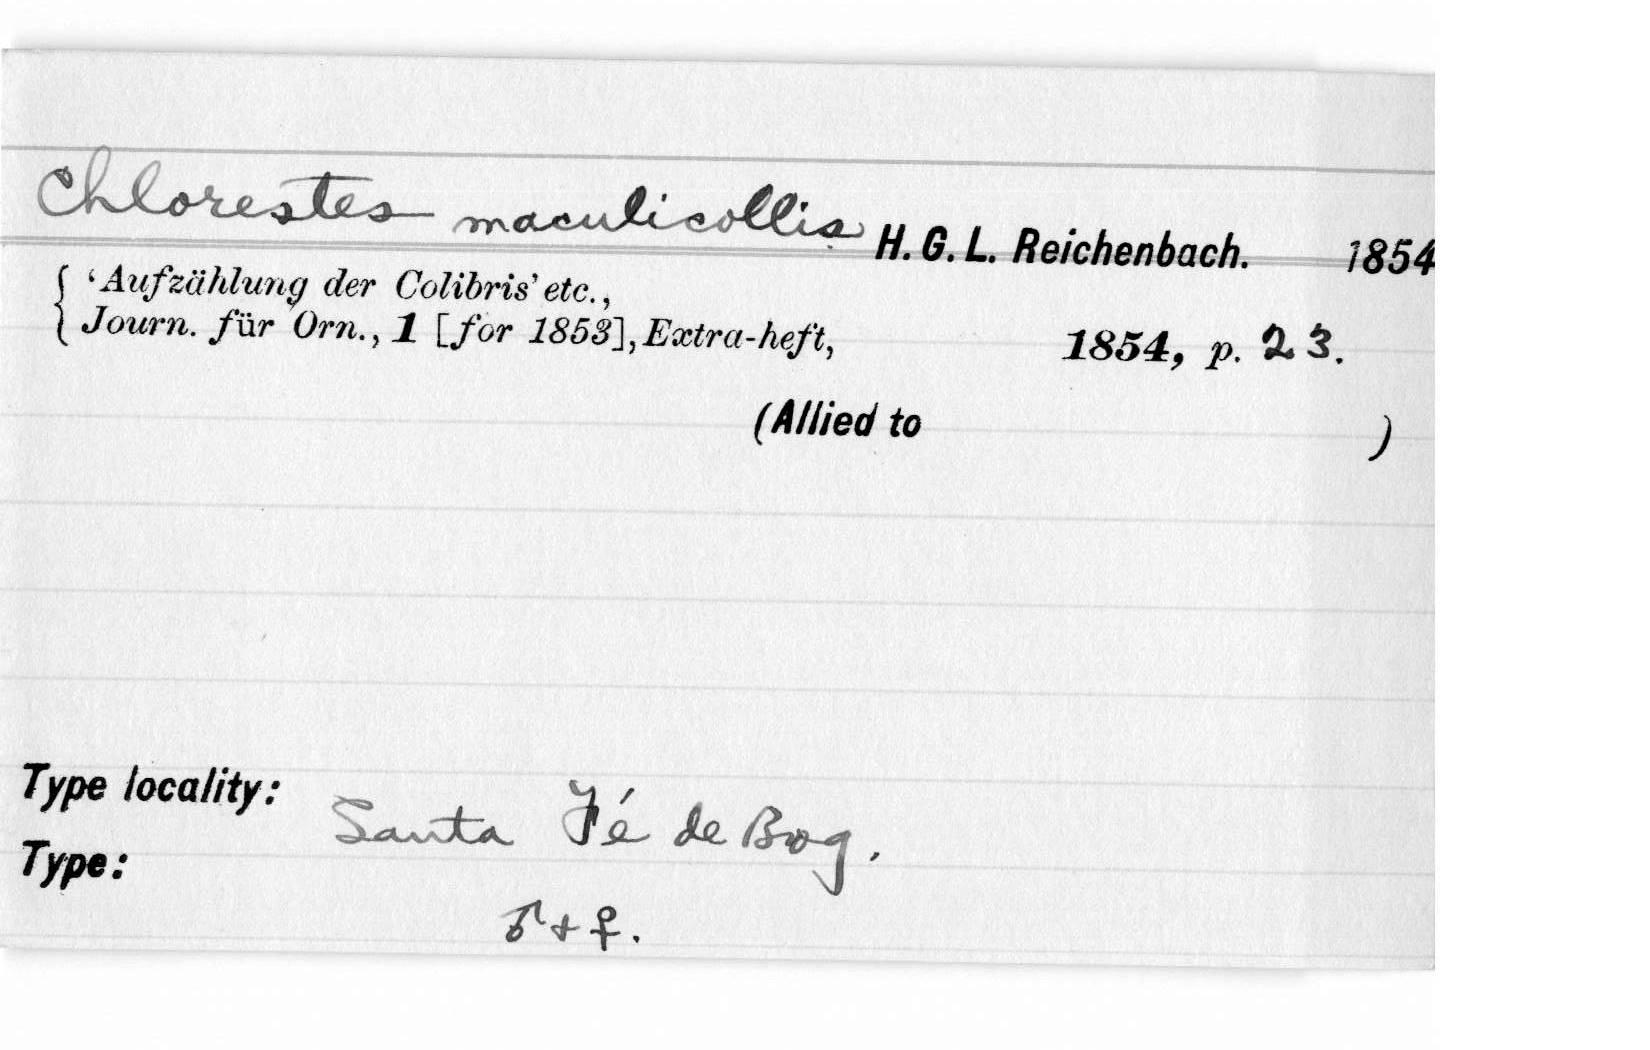 Chlorestes maculicollis H. G. L. Reichenbach. 1854
{ ‘Aufzählung der Colibris’ etc.,
{ Journ. für Orn., 1 [for 1853], Extra-heft, 1854, p. 23.
(Allied to )
Type locality: Santa Fé de Bog.
Type:
♂ + ♀.